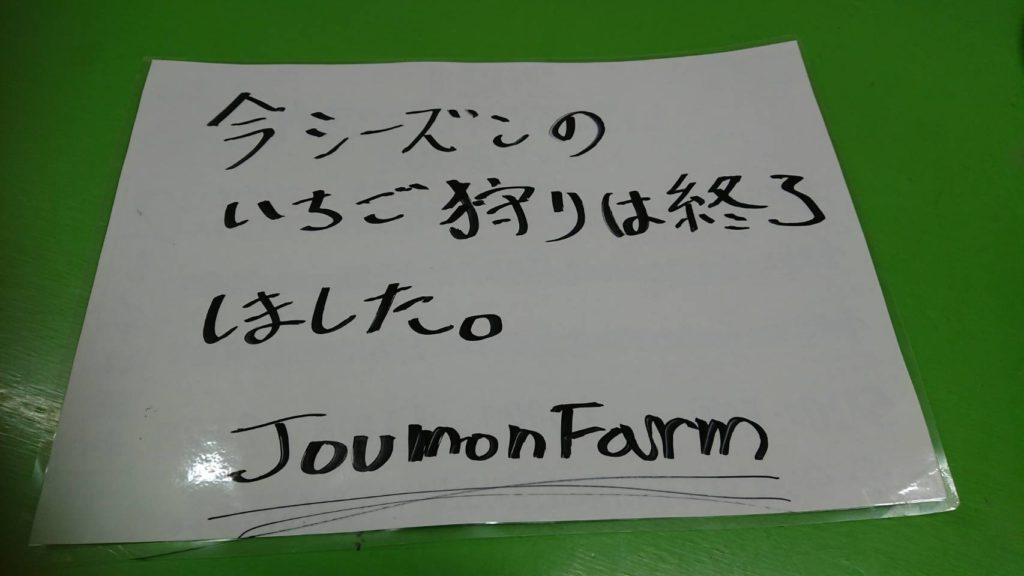 今シーズンの
いちご狩りは終了
しました。
JoumonFarm